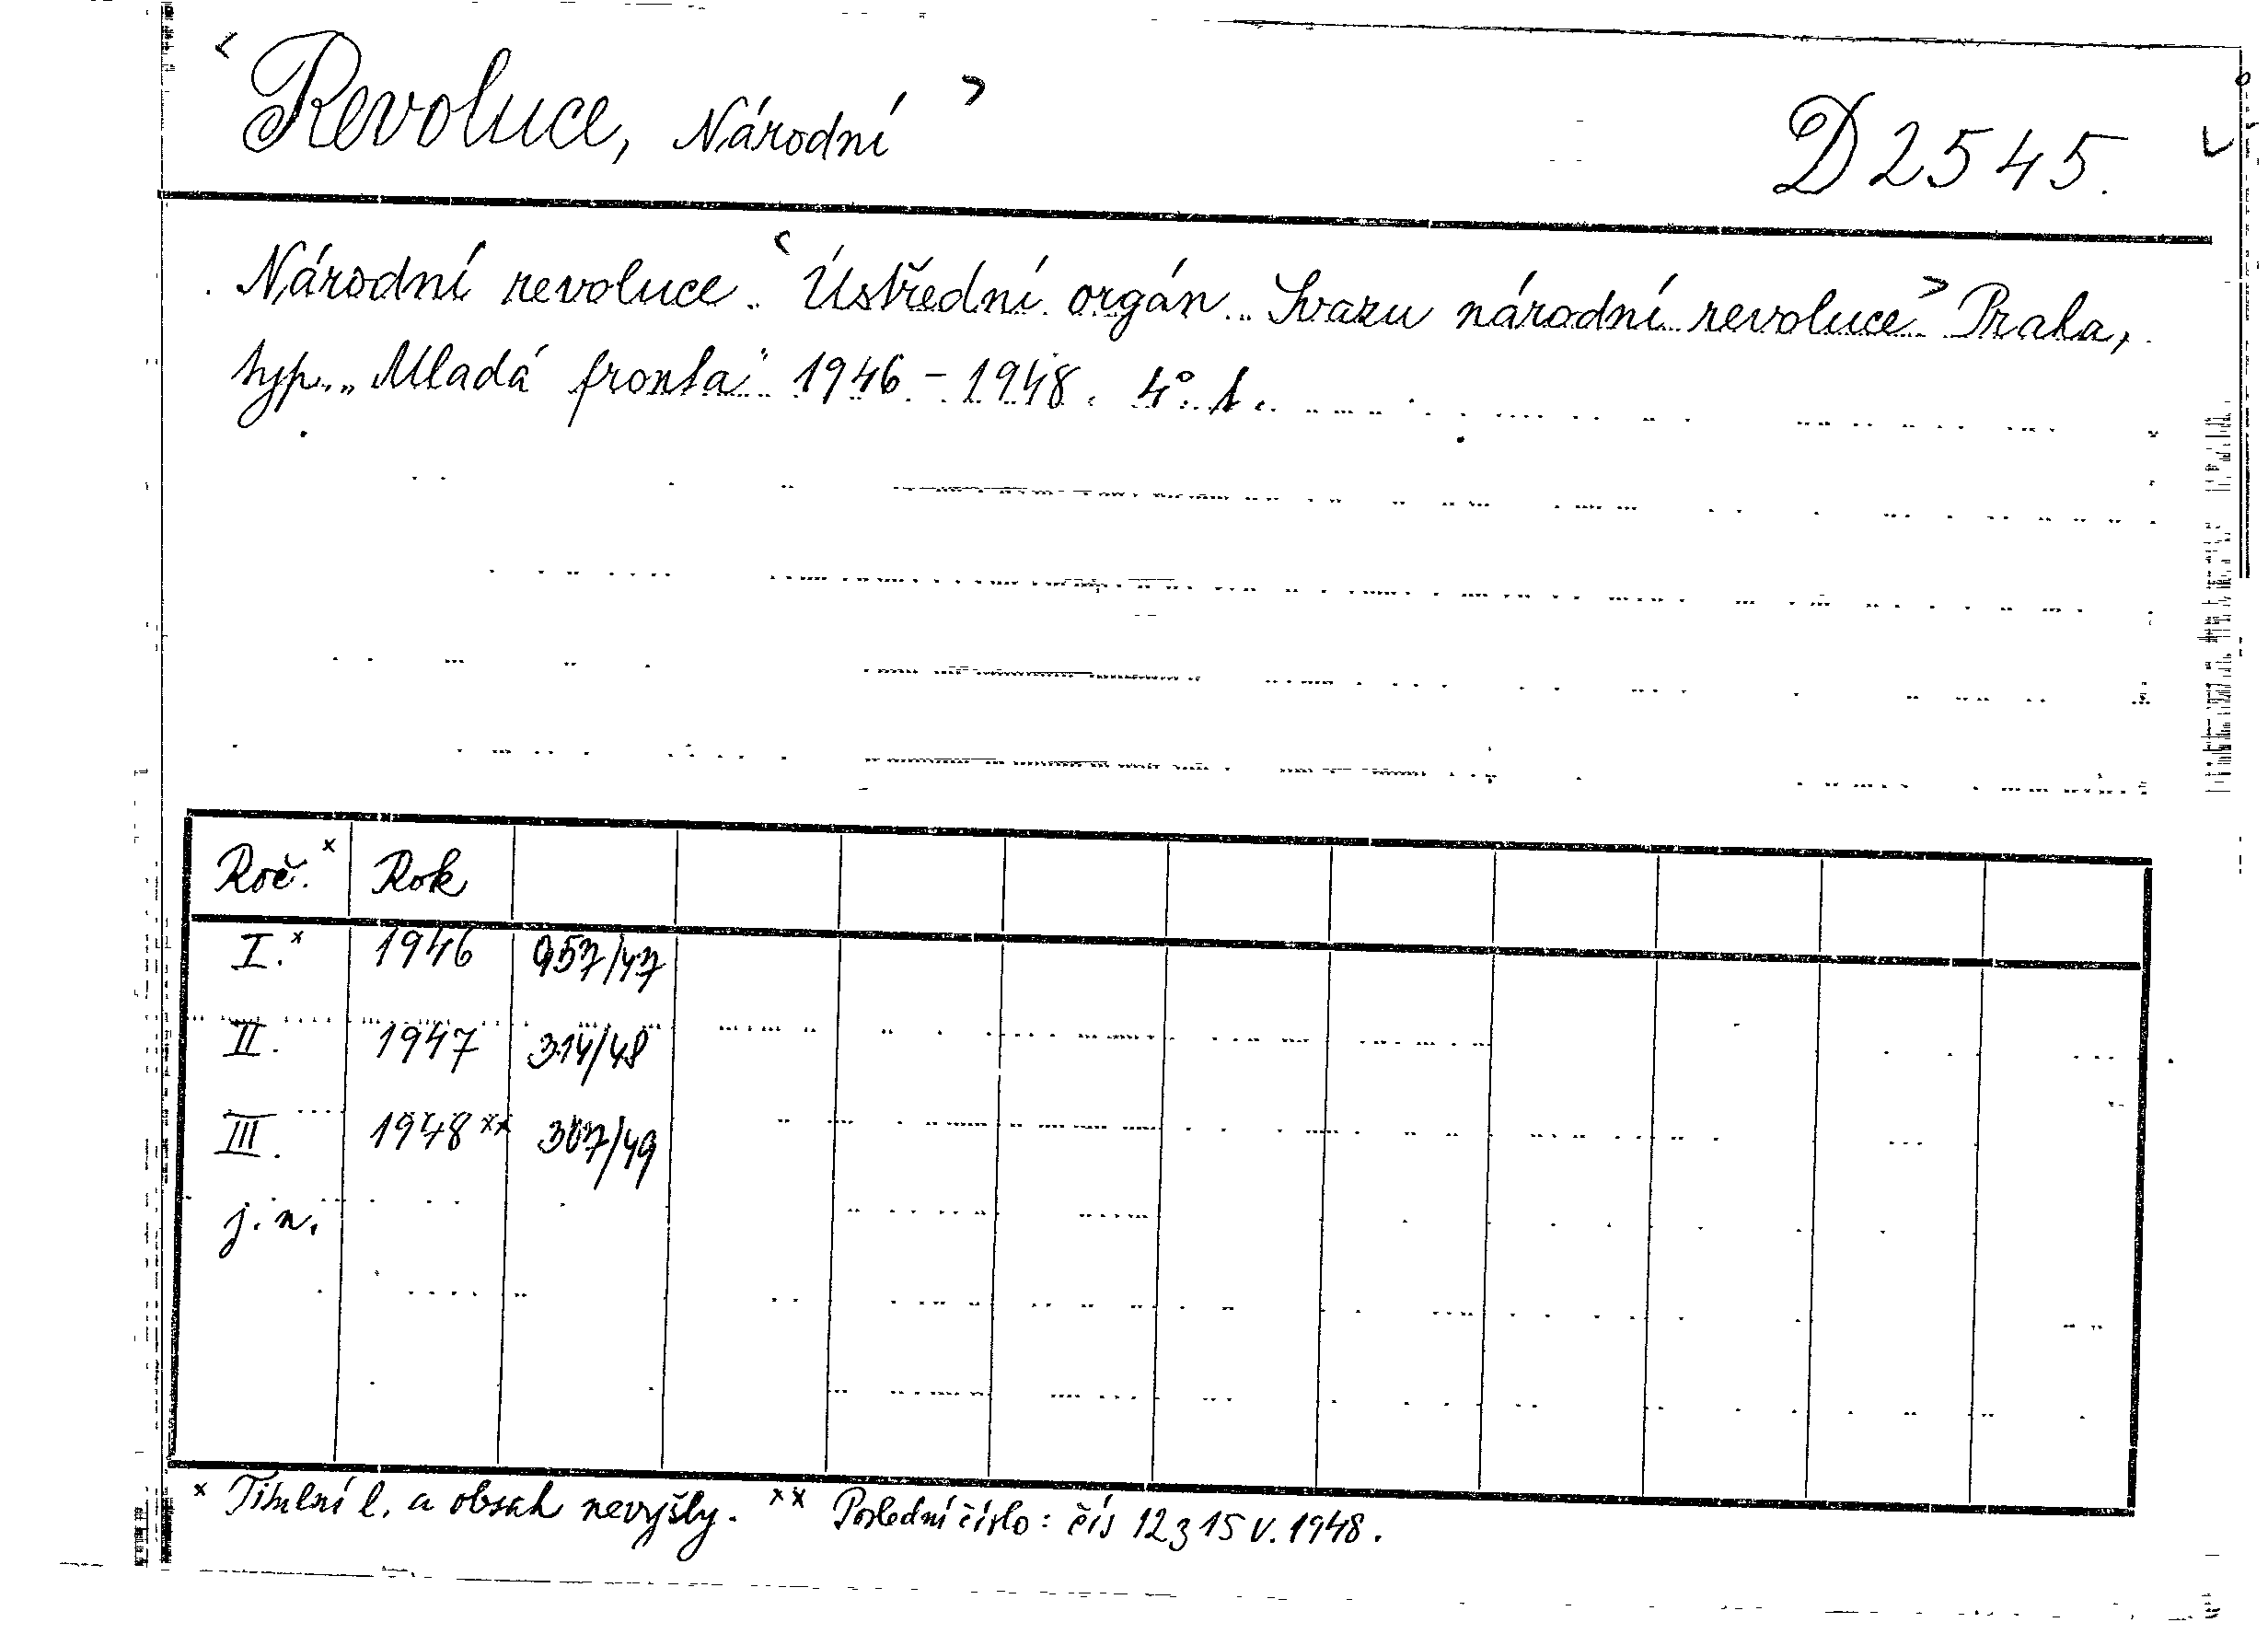 < Revoluce, Národní > D 2545.
Národní revoluce. < Ústřední orgán Svazu národní revoluce > Praha,
typ. „Mladá fronta“ 1946 - 1948. 4°. 1.
Roč.ˣ Rok
I.ˣ 1946 957/47
II. 1947 314/48
III. 1948ˣˣ 307/49
j. n.
ˣ Titulní l. a obsah nevyšly. ˣˣ Poslední číslo: čís 12 z 15 V. 1948.